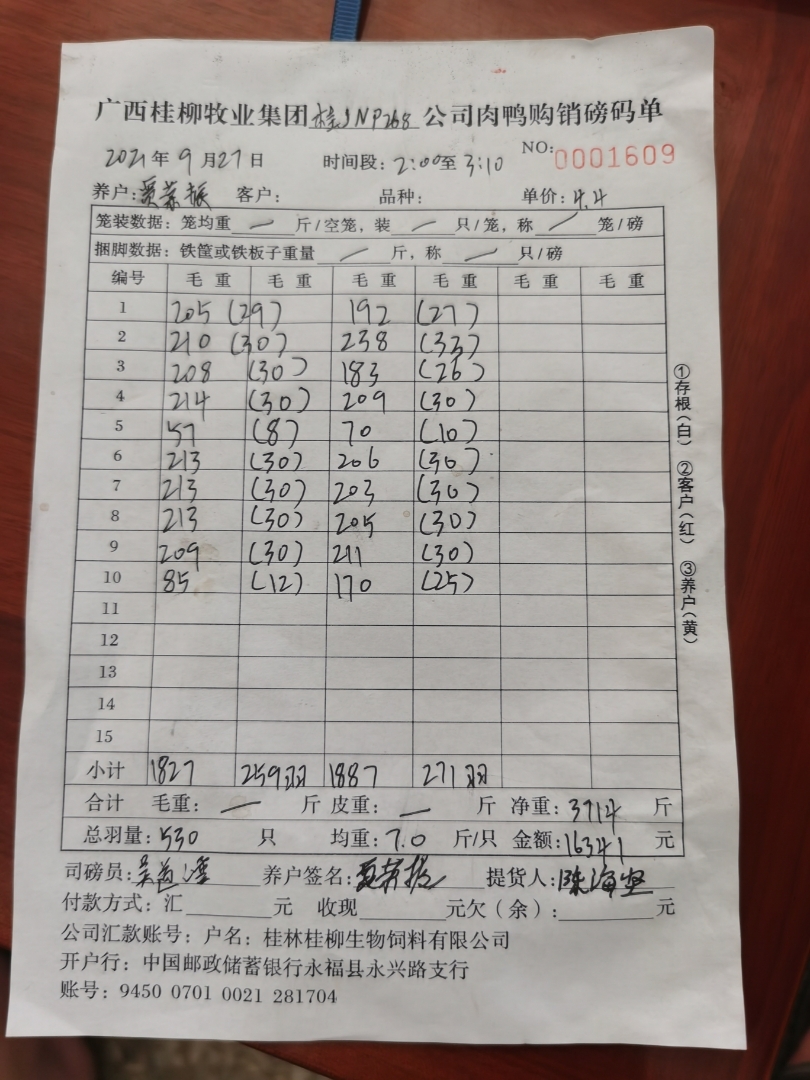 广西桂柳牧业集团桂JNP268公司肉鸭购销磅码单
2021年9月27日 时间段:2:00至3:10 NO:0001609
养户: 客户: 品种: 单价:4.4
笼装数据:笼均重 — 斤/空笼,装 — 只/笼,称 / 笼/磅
捆脚数据:铁筐或铁板子重量 — 斤,称 — 只/磅
编号 毛重 毛重 毛重 毛重 毛重 毛重
1 205 (29) 192 (27)
2 210 (30) 238 (33)
3 208 (30) 183 (26)
4 214 (30) 209 (30)
5 57 (8) 70 (10)
6 213 (30) 206 (30)
7 213 (30) 203 (30)
8 213 (30) 205 (30)
9 209 (30) 211 (30)
10 85 (12) 170 (25)
11
12
13
14
15
小计 1827 259羽 1887 271羽
合计 毛重: — 斤 皮重: — 斤 净重:3714 斤
总羽量:530 只 均重:7.0 斤/只 金额:16341 元
司磅员: 养户签名: 提货人:陈海坚
付款方式:汇 元 收现 元欠(余): 元
公司汇款账号:户名:桂林桂柳生物饲料有限公司
开户行:中国邮政储蓄银行永福县永兴路支行
账号:9450 0701 0021 281704
①存根(白) ②客户(红) ③养户(黄)